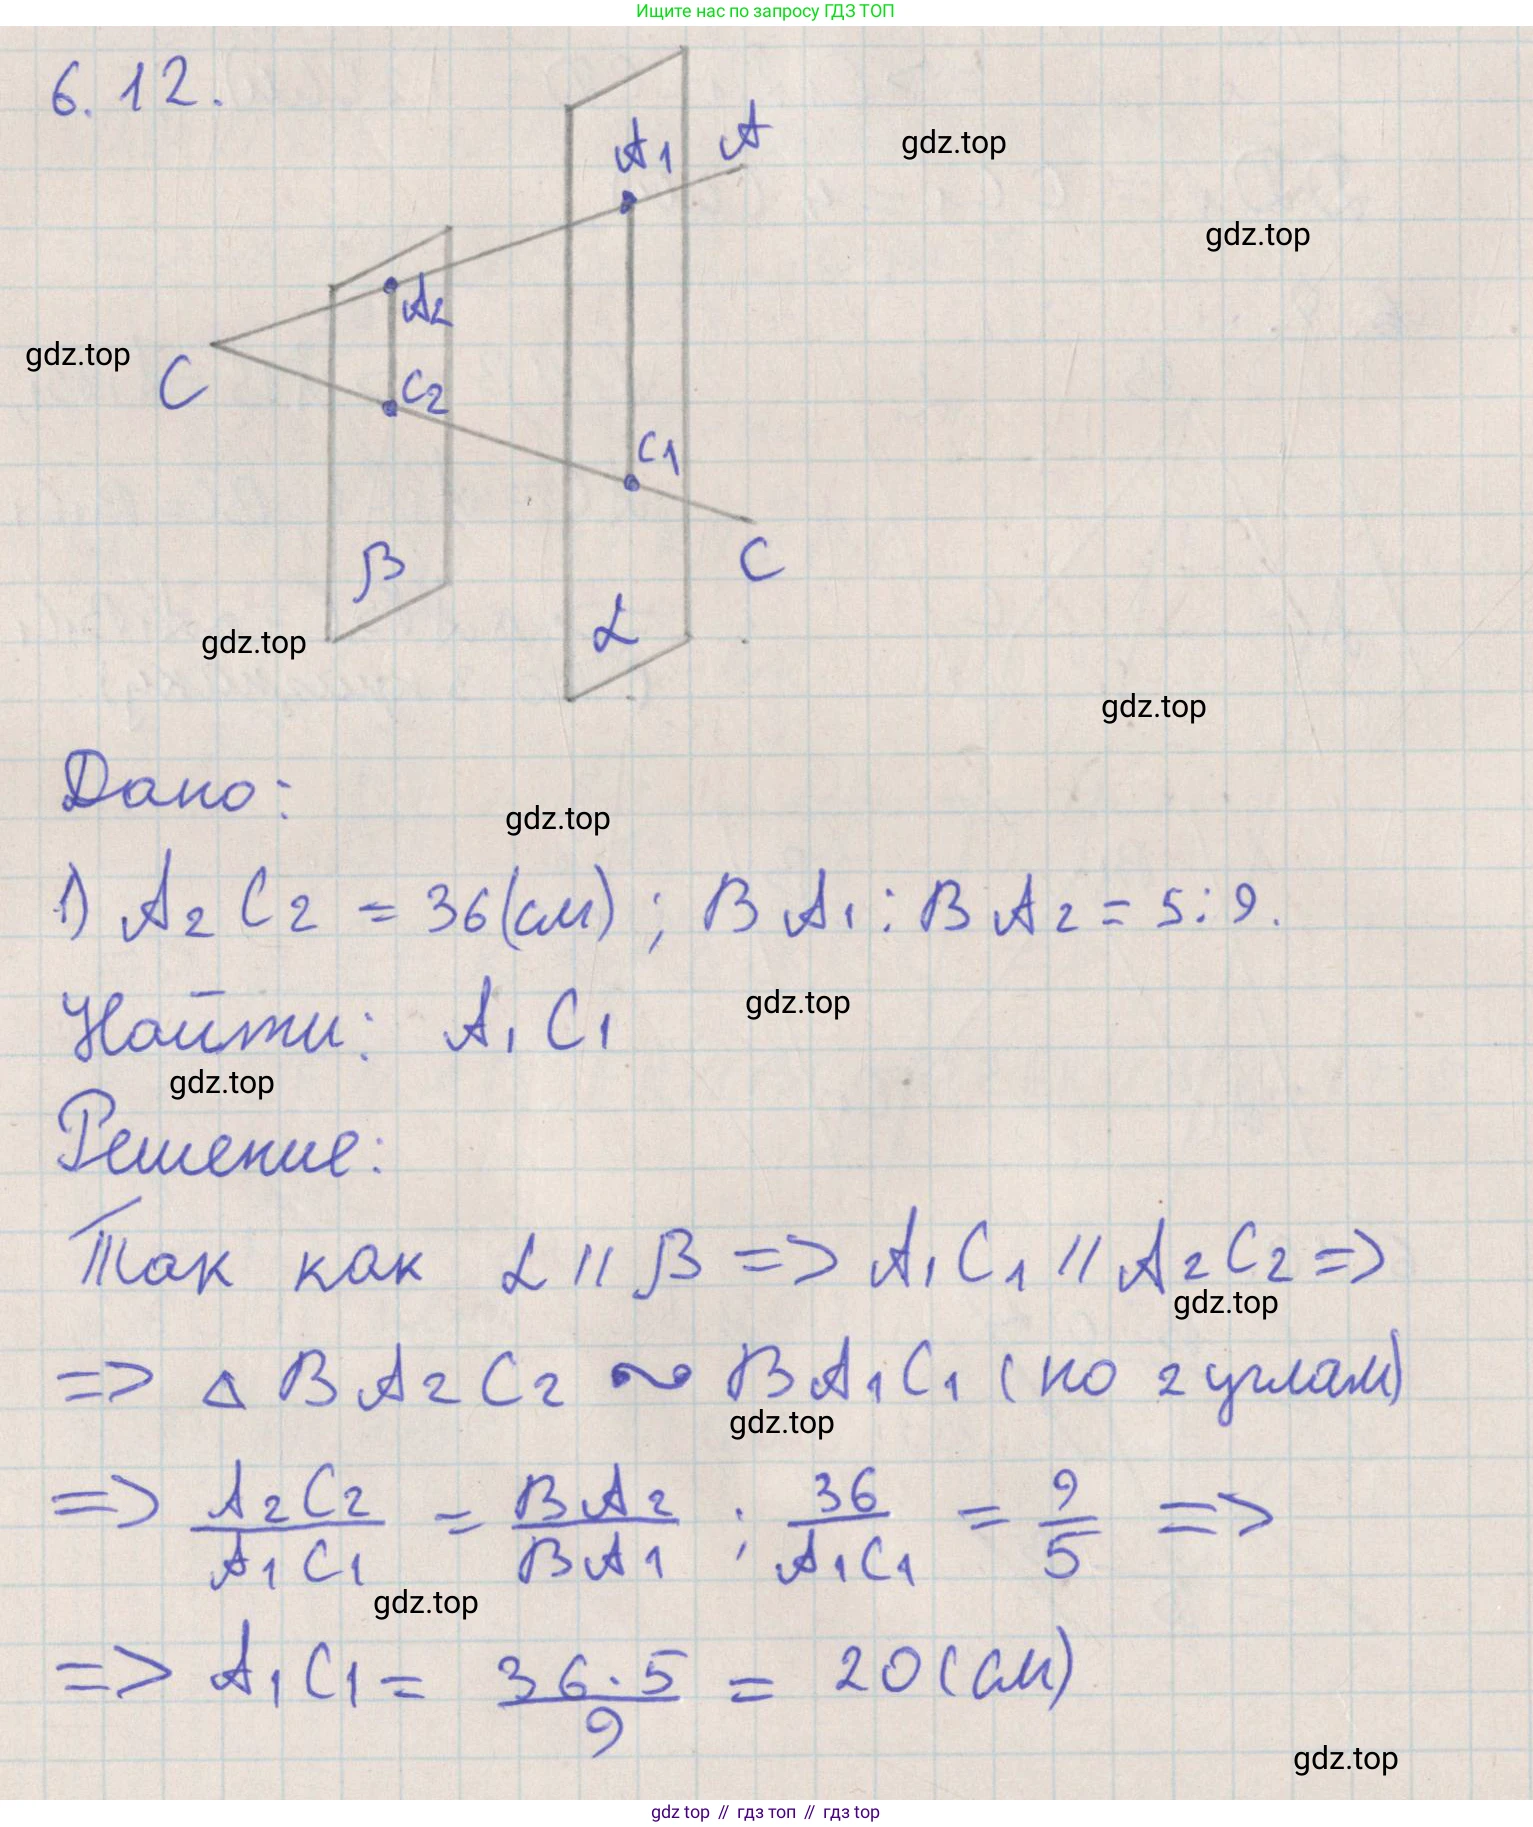 Ищите нас по запросу ГДЗ ТОП
6.12.
A1 A
gdz.top
gdz.top
A2
gdz.top
C
C2
C1
C
β
α
gdz.top
gdz.top
Дано:
gdz.top
1) A2C2 = 36(см); BA1 : BA2 = 5:9.
Найти: A1C1
gdz.top
gdz.top
Решение:
Так как α || β => A1C1 || A2C2 =>
gdz.top
=> Δ BA2C2 ~ BA1C1 (по 2 углам)
gdz.top
=> A2C2/A1C1 = BA2/BA1 ; 36/A1C1 = 9/5 =>
gdz.top
=> A1C1 = 36·5/9 = 20(см)
gdz.top
gdz top // гдз топ // гдз top